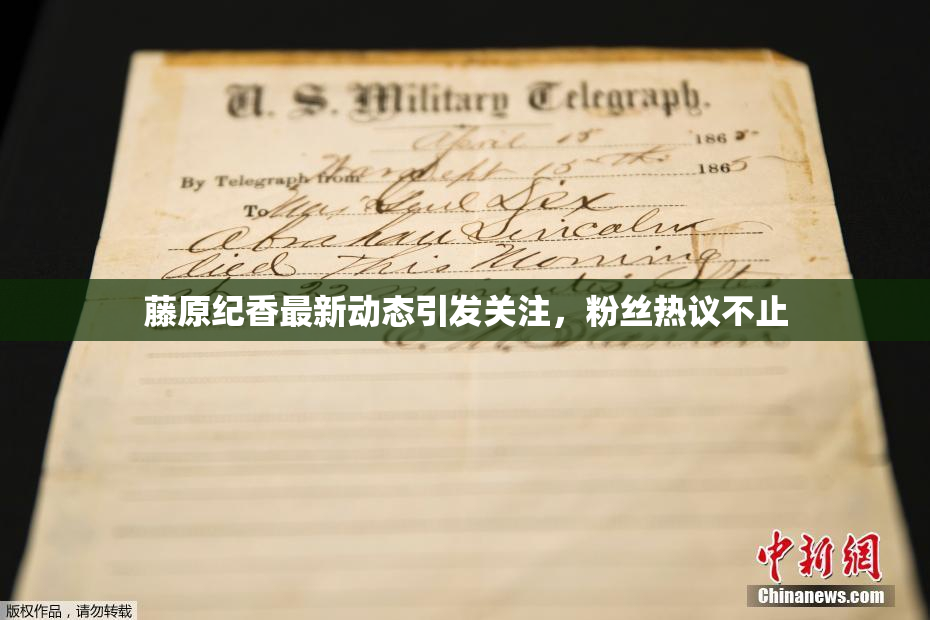 U. S. Military Telegraph.
April 15 1865
By Telegraph from War Dept 15th 1865
To Maj Genl Dix
Abraham Lincoln
died This Morning
22 minutes after
藤原纪香最新动态引发关注，粉丝热议不止
中新網
Chinanews.com
版权作品，请勿转载